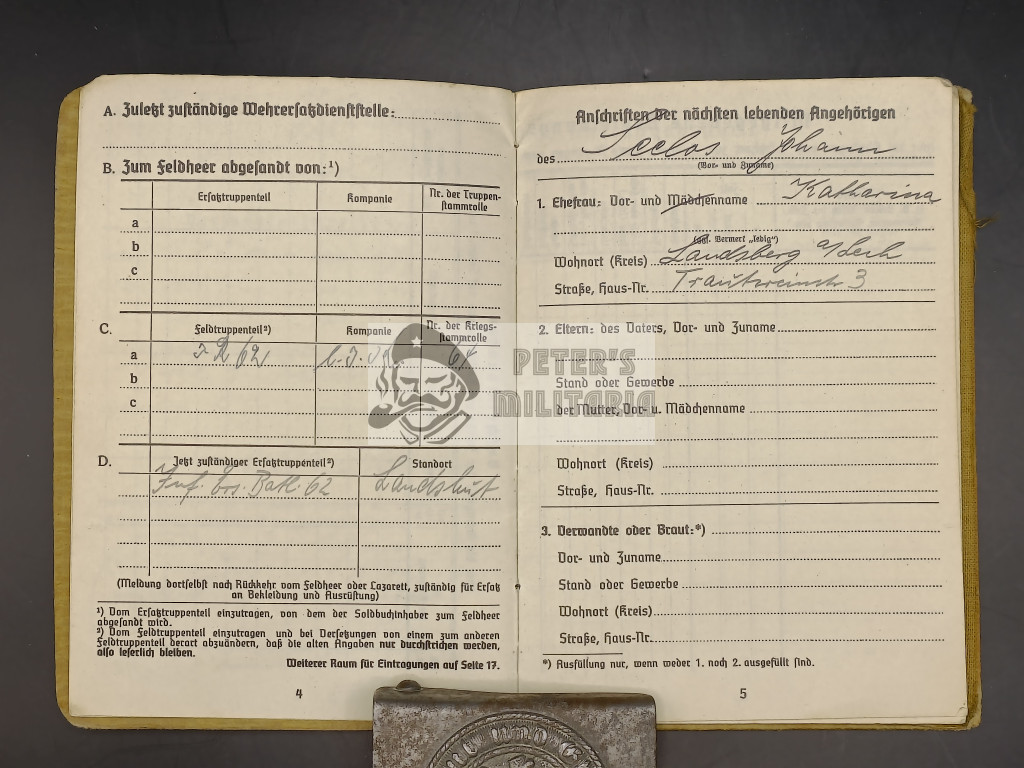 A. Zuletzt zuständige Wehrersatzdienststelle:
B. Zum Feldheer abgesandt von:¹)
Ersatztruppenteil Kompanie Nr. der Truppen-
stammrolle
a
b
c
C. Feldtruppenteil²) Kompanie Nr. der Kriegs-
stammrolle
a J R 62 64
b
c
D. Jetzt zuständiger Ersatztruppenteil²) Standort
Inf. Ers. Batl. 62 Landshut
(Meldung dortselbst nach Rückkehr vom Feldheer oder Lazarett, zuständig für Ersatz
an Bekleidung und Ausrüstung)
¹) Vom Ersatztruppenteil einzutragen, von dem der Soldbuchinhaber zum Feldheer
abgesandt wird.
²) Vom Feldtruppenteil einzutragen und bei Versetzungen von einem zum anderen
Feldtruppenteil derart abzuändern, daß die alten Angaben nur durchstrichen werden,
also leserlich bleiben.
Weiterer Raum für Eintragungen auf Seite 17.
4
Anschriften der nächsten lebenden Angehörigen
des Seelos Johann
(Vor- und Zuname)
1. Ehefrau: Vor- und Mädchenname Katharina
(ggf. Vermerk „ledig")
Wohnort (Kreis) Landsberg a/Lech
Straße, Haus-Nr. Trautweinstr 3
2. Eltern: des Vaters, Vor- und Zuname
Stand oder Gewerbe
der Mutter, Vor- u. Mädchenname
Wohnort (Kreis)
Straße, Haus-Nr.
3. Verwandte oder Braut:*)
Vor- und Zuname
Stand oder Gewerbe
Wohnort (Kreis)
Straße, Haus-Nr.
*) Ausfüllung nur, wenn weder 1. noch 2. ausgefüllt sind.
5
PETER'S
MILITARIA